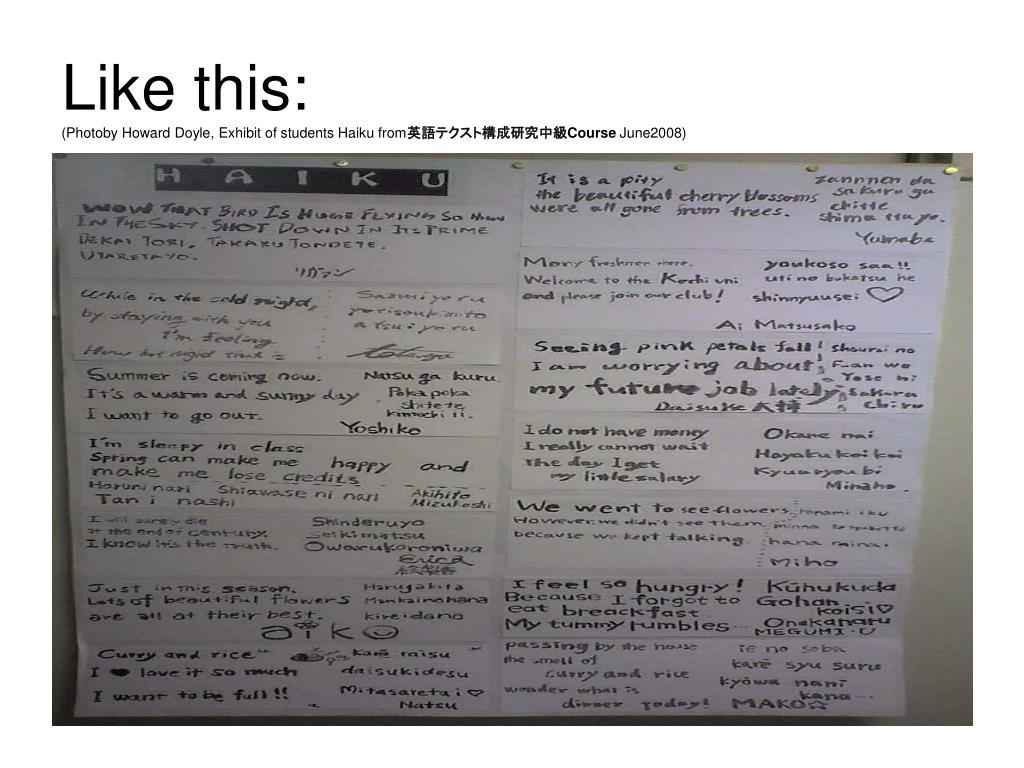 Like this:
(Photoby Howard Doyle, Exhibit of students Haiku from英語テクスト構成研究中級Course June2008)
HAIKU
WOW THAT BIRD IS HUGE FLYING SO HIGH
IN THE SKY. SHOT DOWN IN ITS PRIME
DEKAI TORI, TAKAKU TONDETE.
UTARETAYO.
While in the cold night,
by staying with you
I'm feeling
How hot night that is
Samui yoru
yorisoukimito
atsui yoru
Summer is coming now.
It's a warm and sunny day
I want to go out.
Natsu ga kuru.
Poka poka
shitete
kimochi ii.
Yoshiko
I'm sleepy in class
Spring can make me happy and
make me lose credits
Haruni nari Shiawase ni nari
Tan i nashi
Akihito
Mizukoshi
I will surely die
at the end of century.
I know it's the truth.
Shinderuyo
Seikimatsu
Owarukoroniwa
Erica
Just in this season.
Lots of beautiful flowers
are all at their best.
Harugakita
Mankainohana
kireidana
aiko
Curry and rice
I ❤ love it so much
I want to be full!!
Karē raisu
daisukidesu
Mitasaretai ♡
Natsu
It is a pity
the beautiful cherry blossoms
were all gone from trees.
zannnen da
sakura ga
chitte
shima ttayo.
Yamabe
Many freshmen there.
Welcome to the Kochi uni
and please join our club!
youkoso saa!!
uti no bukatsu he
shinnyuusei ♡
Ai Matsusako
Seeing pink petals fall
I am worrying about
my future job lately
shourai no
F-an wo
Yose ni
Sakura
Chiru
Daisuke
I do not have money
I really cannot wait
the day I get
my little salary
Okane nai
Hayaku koi koi
Kyuuryou bi
Minaho.
We went to see flowers.
However, we didn't see them
because we kept talking.
hanami iku
hana mina.
Miho
I feel so hungry!
Because I forgot to
eat breackfast.
My tummy rumbles...
Kūhukuda
Gohan
koisi♡
Onakanaru
MEGUMI・U
passing by the house
the smell of
curry and rice
wonder what is
dinner today!
ie no soba
karē syu suru
kyōwa nani
kana...
MAKO☆